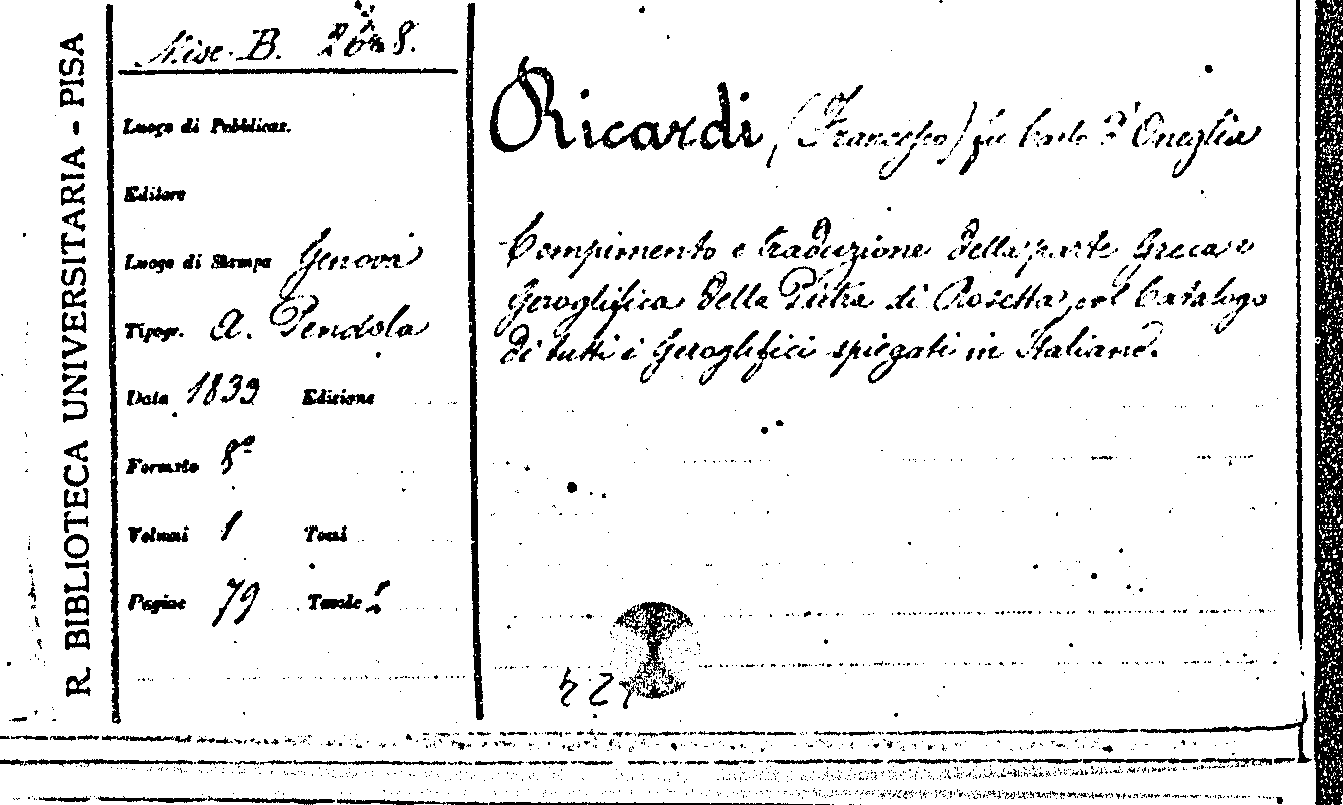 R. BIBLIOTECA UNIVERSITARIA - PISA
Misc. B.
Luogo di Pubblicaz.
Editore
Luogo di Stampa Genova
Tipogr. A. Pendola
Data 1833 Edizione
Formato 8º
Volumi 1 Tomi
Pagine 79 Tavole 1
Ricardi, (Francesco) fu Carlo D'Oneglia
Compimento e traduzione della parte Greca e
Geroglifica della Pietra di Rosetta col Catalogo
di tutti i Geroglifici spiegati in Italiano.